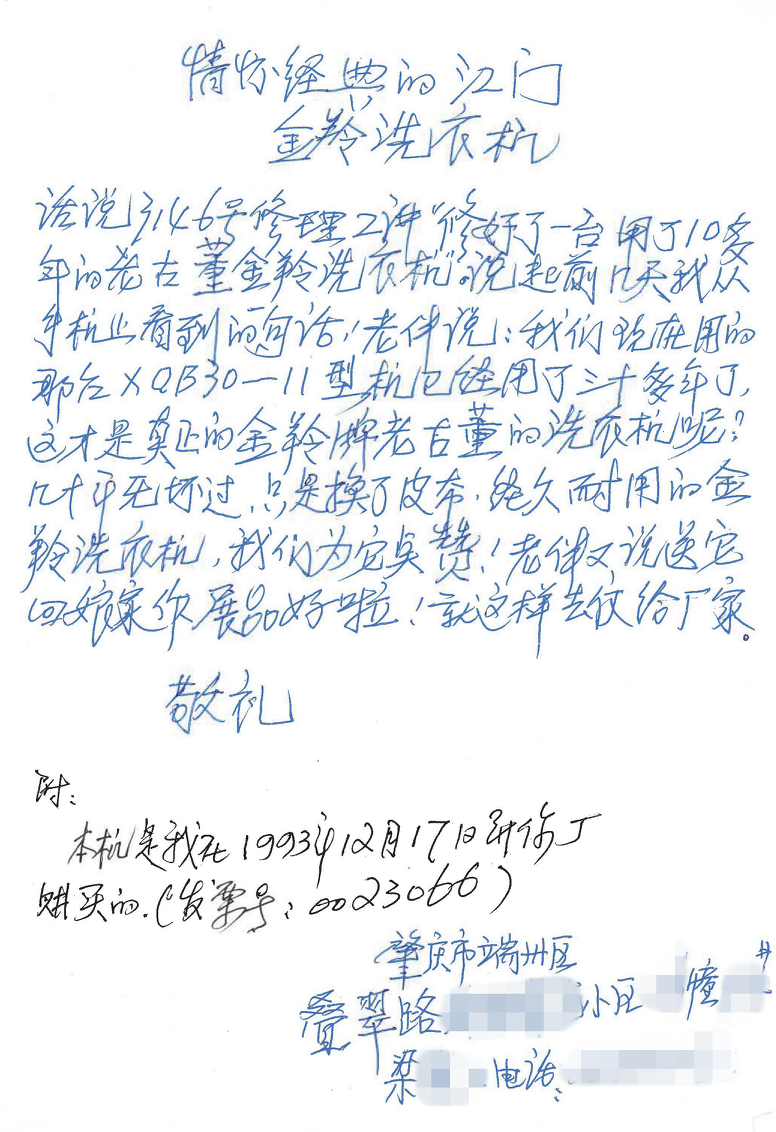 情怀经典的江门
金羚洗衣机
话说3146号修理工讲"修好了一台用了10多
年的老古董金羚洗衣机"。说起前几天我从
手机上看到的句话！老伴说：我们现在用的
那台XQB30—11型机已经用了三十多年了，
这才是真正的金羚牌老古董的洗衣机呢？
几十年无坏过，只是换了皮带，经久而耐用的金
羚洗衣机，我们为它点赞！老伴又说送它
回娘家作展品好啦！就这样去信给厂家。
敬礼
附：
本机是我在1993年12月17日到你厂
购买的.（发票号：0023066）
肇庆市端州区
叠翠路 小区 幢
梁 电话：